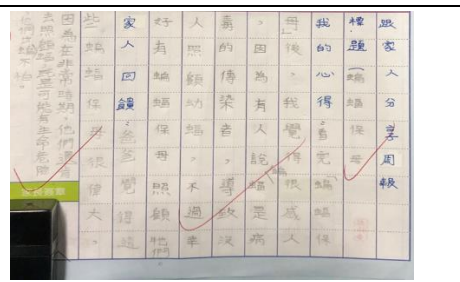 跟家人分享周報
標題(蝙蝠保母)
我的心得:看完蝙蝠保
母後,我覺得很感人
,因為有人說蝙蝠是病
毒的傳染者,導致沒
人照顧幼蝠,不過幸
好有蝙蝠保母照顧牠們
家人回饋:爸爸覺得這
些蝙蝠保母很偉大,
因為在非常時期,他們還有
去照顧蝙蝠可能有生命危險
他們也不怕。